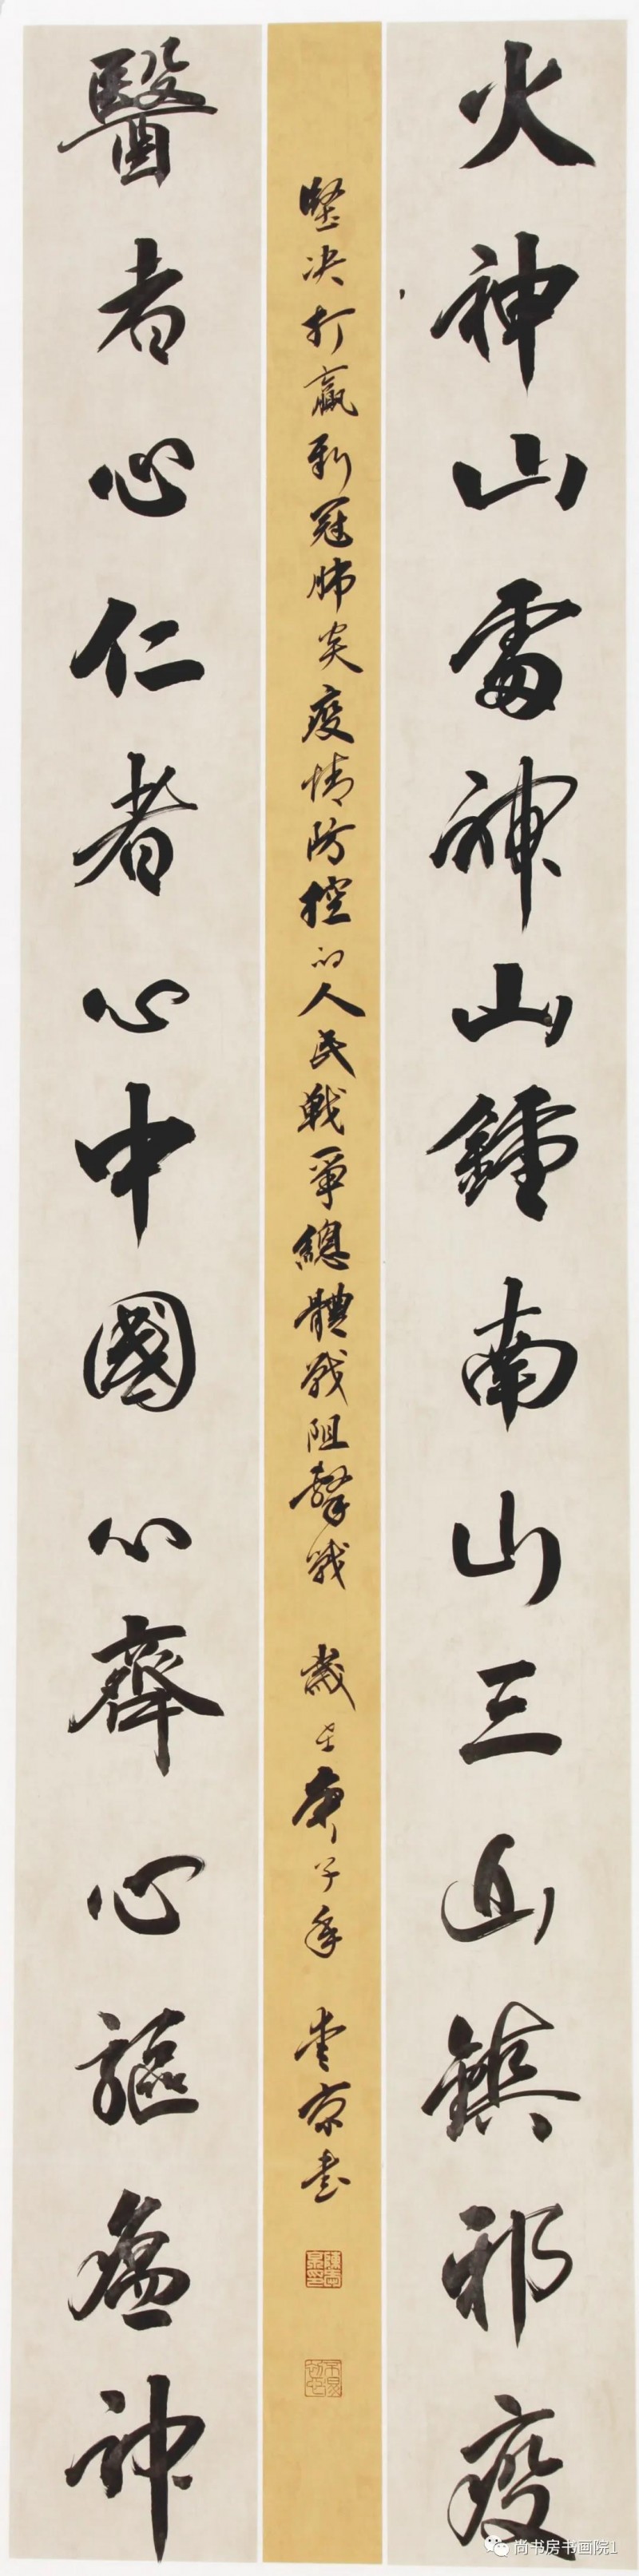 火神山雷神山鍾南山三山鎮邪疫
堅决打贏新冠肺炎疫情防控的人民戰爭總體戰阻擊戰 歲在庚子年 書
醫者心仁者心中國心齊心驅瘟神
尚书房书画院1